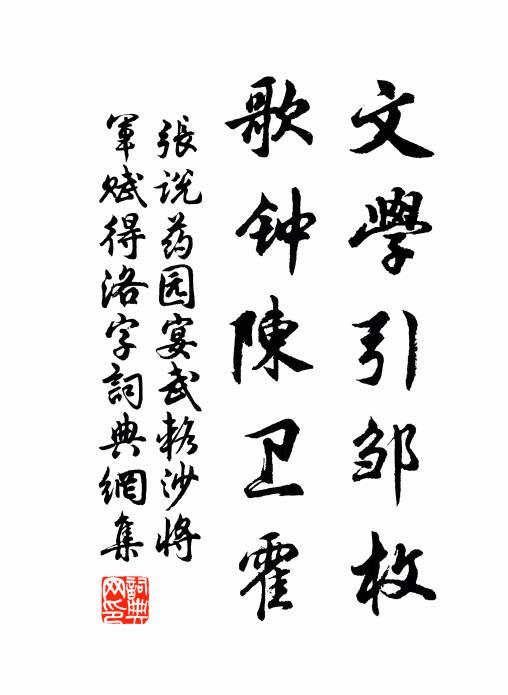 文學引邹枚
歌钟陳卫霍
張说药园宴武輅沙將
軍赋得洛字詞典網集
詞典網印